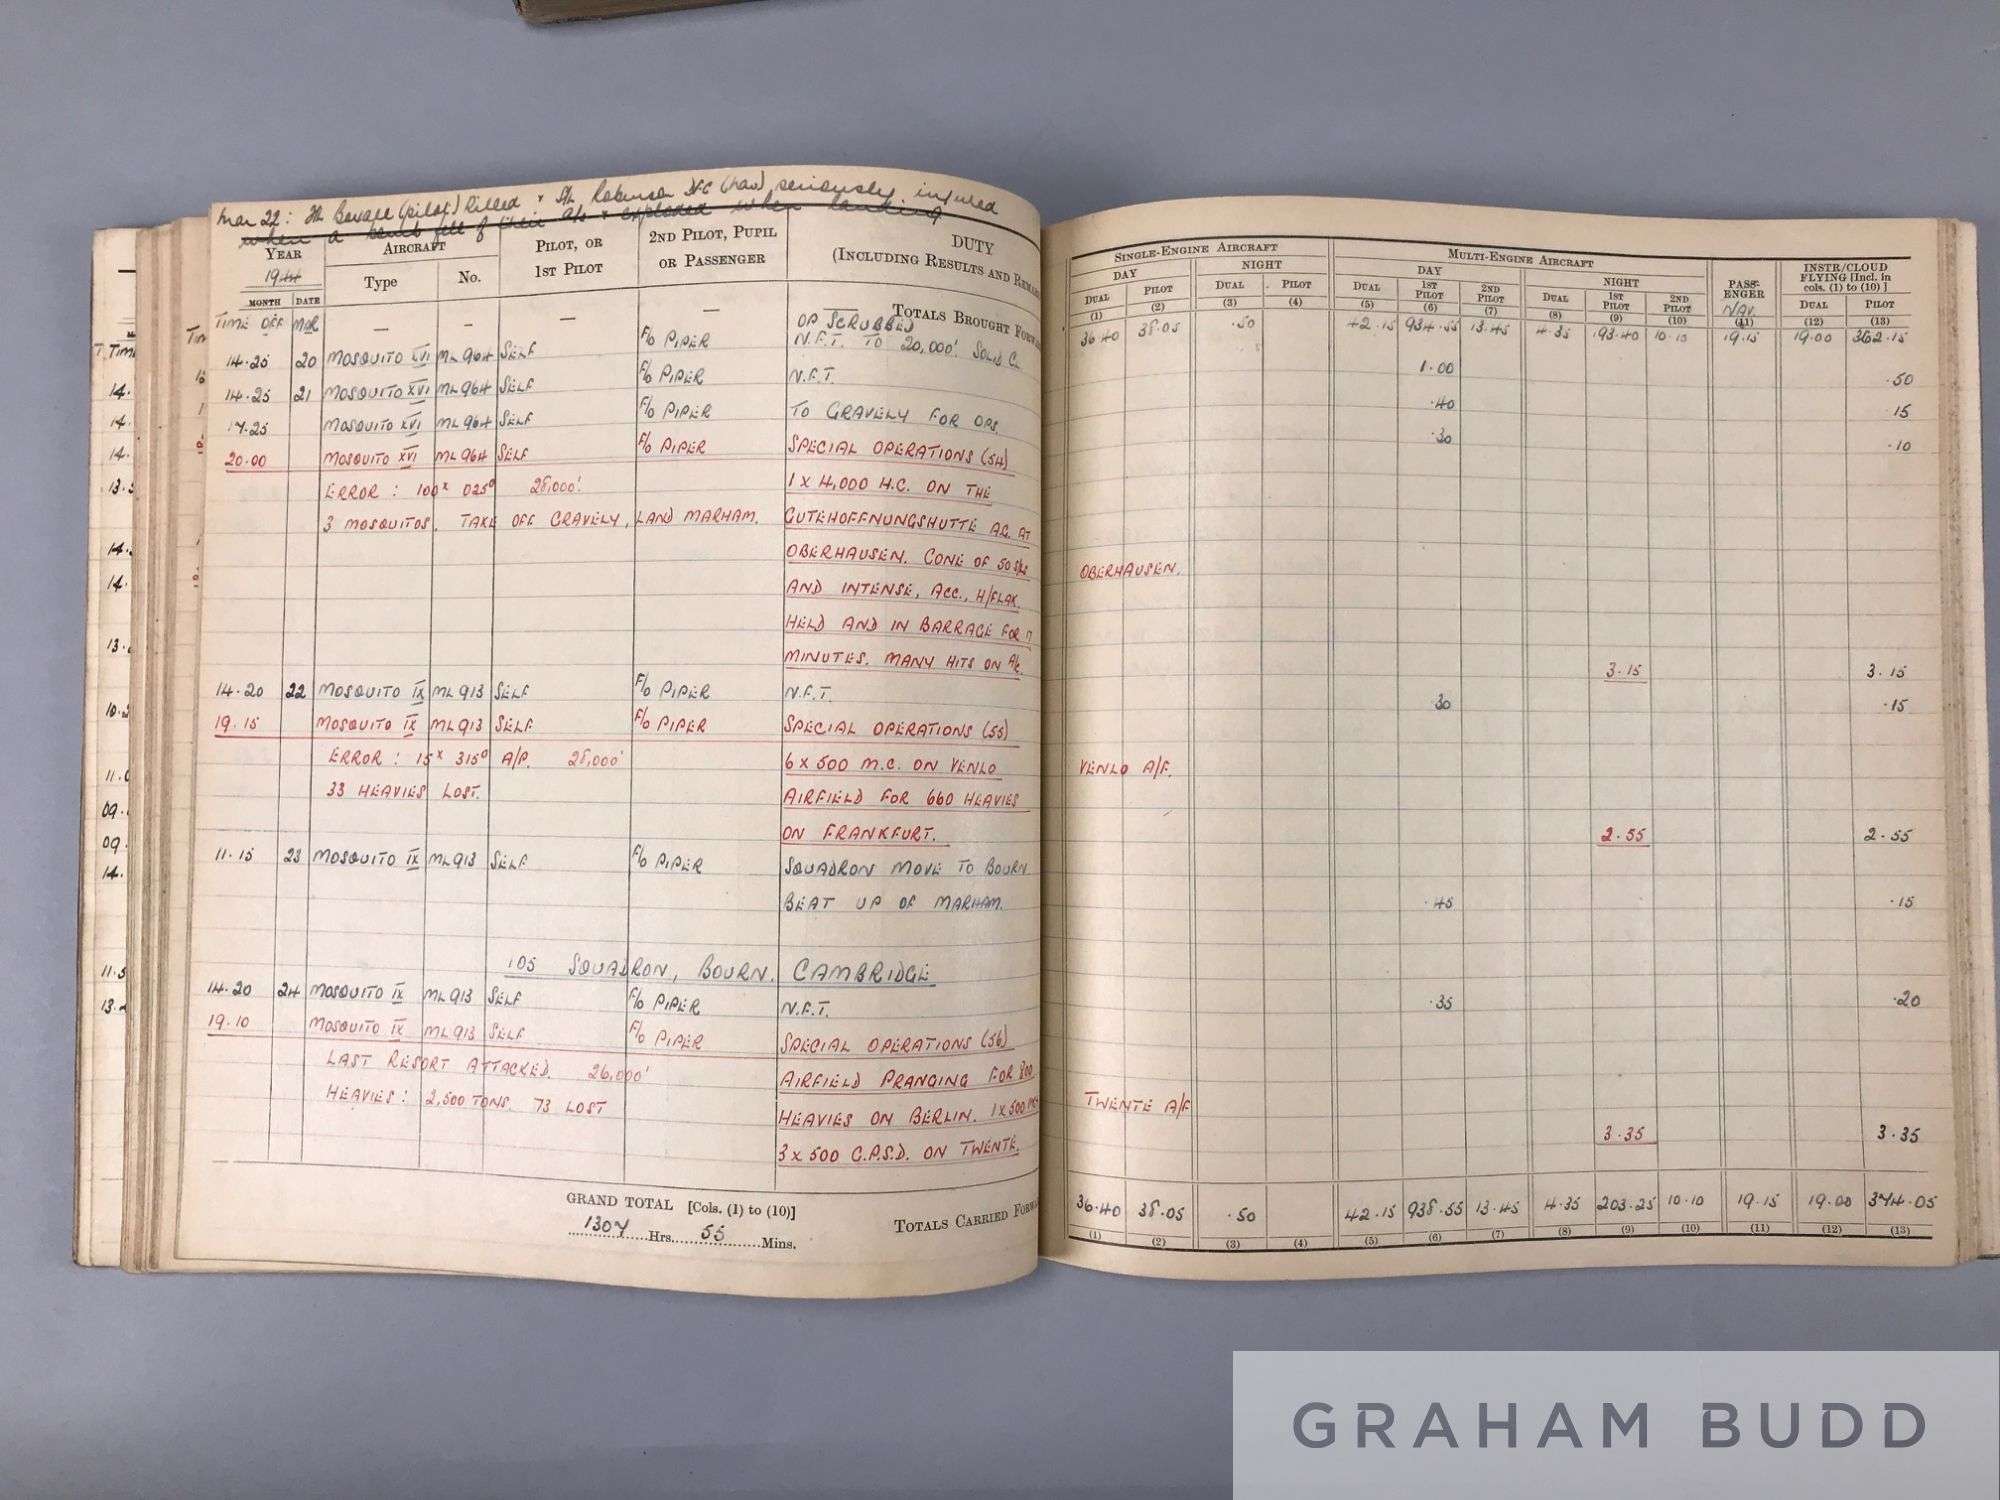 Mar 22: F/L Boxall (pilot) killed + F/L Robinson DFC (nav) seriously injured
when a bomb fell off their a/c + exploded when landing
YEAR AIRCRAFT PILOT, OR 2ND PILOT, PUPIL DUTY
1944 Type No. 1ST PILOT OR PASSENGER (INCLUDING RESULTS AND REMAR
MONTH DATE
TOTALS BROUGHT FORWA
TIME OFF MAR — — — — OP SCRUBBED
14.25 20 MOSQUITO XVI ML964 SELF F/O PIPER N.F.T. TO 20,000'. SOLID CL.
14.25 21 MOSQUITO XVI ML964 SELF F/O PIPER N.F.T.
17.25 MOSQUITO XVI ML964 SELF F/O PIPER TO GRAVELY FOR OPS.
20.00 MOSQUITO XVI ML964 SELF F/O PIPER SPECIAL OPERATIONS (54)
ERROR : 100x 025° 28,000'. 1 X 4,000 H.C. ON THE
3 MOSQUITOS. TAKE OFF GRAVELY, LAND MARHAM. GUTEHOFFNUNGSHUTTE A.G. AT
OBERHAUSEN. CONE OF 50 S/LS
AND INTENSE, ACC., H/FLAK.
HELD AND IN BARRAGE FOR 17
MINUTES. MANY HITS ON A/C.
14.20 22 MOSQUITO IX ML913 SELF F/O PIPER N.F.T
19.15 MOSQUITO IX ML913 SELF F/O PIPER SPECIAL OPERATIONS (55)
ERROR : 15x 315° A/P. 28,000' 6 X 500 M.C. ON VENLO
33 HEAVIES LOST. AIRFIELD FOR 660 HEAVIES
ON FRANKFURT.
11.15 23 MOSQUITO IX ML913 SELF F/O PIPER SQUADRON MOVE TO BOURN
BEAT UP OF MARHAM.
105 SQUADRON, BOURN. CAMBRIDGE
14.20 24 MOSQUITO IX ML913 SELF F/O PIPER N.F.T.
19.10 MOSQUITO IX ML913 SELF F/O PIPER SPECIAL OPERATIONS (56)
LAST RESORT ATTACKED. 26,000' AIRFIELD PRANGING FOR 800
HEAVIES : 2,500 TONS. 73 LOST HEAVIES ON BERLIN. 1 X 500 MC
3 X 500 G.P.S.D. ON TWENTE.
GRAND TOTAL [Cols. (1) to (10)]
1307 Hrs. 55 Mins.
TOTALS CARRIED FORWA
SINGLE-ENGINE AIRCRAFT MULTI-ENGINE AIRCRAFT PASS-ENGER INSTR/CLOUD FLYING [Incl. in cols. (1) to (10)]
DAY NIGHT DAY NIGHT NAV.
DUAL PILOT DUAL PILOT DUAL 1ST PILOT 2ND PILOT DUAL 1ST PILOT 2ND PILOT DUAL PILOT
(1) (2) (3) (4) (5) (6) (7) (8) (9) (10) (11) (12) (13)
36.40 38.05 .50 42.15 934.55 13.45 4.35 193.40 10.10 19.15 19.00 362.15
1.00 .50
.40 .15
.30 .10
OBERHAUSEN.
3.15 3.15
.30 .15
VENLO A/F.
2.55 2.55
.45 .15
.35 .20
TWENTE A/F
3.35 3.35
36.40 38.05 .50 42.15 938.55 13.45 4.35 203.25 10.10 19.15 19.00 374.05
(1) (2) (3) (4) (5) (6) (7) (8) (9) (10) (11) (12) (13)
GRAHAM BUDD